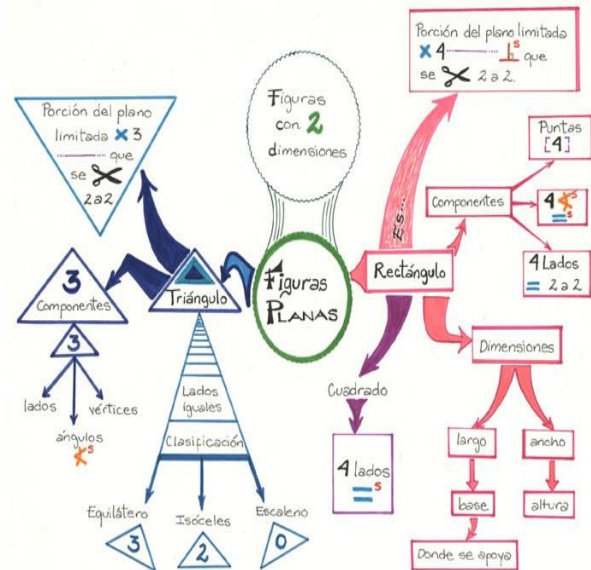 Figuras
con 2
dimensiones
Figuras
Planas
Triángulo
Porción del plano
limitada x 3
que
se
2 a 2
3
Componentes
3
lados
vértices
ángulos
s
Lados
iguales
Clasificación
Equilátero
Isóceles
Escaleno
3
2
0
Rectángulo
Es...
Porción del plano limitada
x 4
s que
se 2 a 2.
Componentes
Puntas
[4]
4 s
= s
4 Lados
= 2 a 2
Dimensiones
largo
ancho
base
altura
Donde se apoya
Cuadrado
4 lados
= s